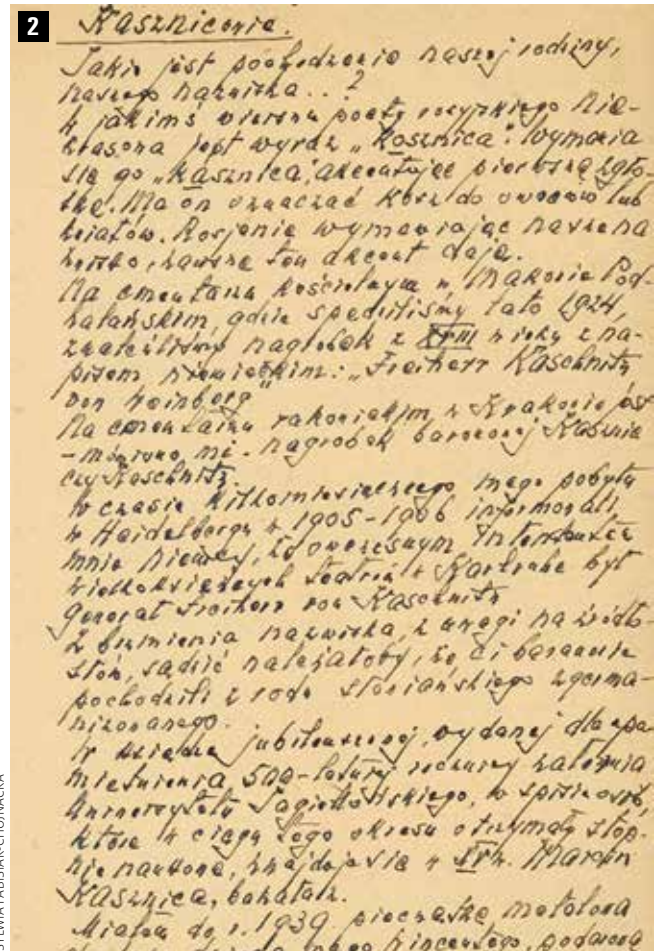 2
Kasznicowie.
Jakie jest pochodzenie naszej rodziny,
naszego nazwiska..?
W jakimś wierszu poety rosyjskiego Nie-
krasowa jest wyraz „Kosznica". Wymawia
się go „Kasznica", akcentując pierwszą zgło-
skę. Ma on oznaczać kosz do owoców lub
kwiatów. Rosjanie wymawiając nasze na
zwisko, zawsze ten akcent dają.
Na cmentarzu kościelnym w Makowie Pod-
halańskim, gdzie spędziliśmy lato 1924,
znaleźliśmy nagrobek z XVIII wieku z na-
pisem niemieckim: „Freiherr Kaschnitz
von Weinberg
Na cmentarzu rakowickim w Krakowie jest
- mówiono mi - nagrobek baronowej Kasznic
czy Kaschnitz.
W czasie kilkomiesięcznego mego pobytu
w Haidelbergu w 1905-1906 informowali
mnie Niemcy, że ówczesnym Intendantem
wielkoksiążęcych teatrów w Karlsruhe był
generał Freiherr von Kaschnitz
Z brzmienia nazwiska, z uwagi na źródło-
słów, sądzić należałoby, że ci baronowie
pochodzili z rodu słowiańskiego zgerma-
nizowanego.
W księdze jubileuszowej, wydanej dla upa-
miętnienia 500-letniej rocznicy założenia
Uniwersytetu Jagiellońskiego, w spisie osób,
które w ciągu tego okresu otrzymały stop-
nie naukowe, znajduje się w w. Marcin
Kasznica, bakałarz.
Miałem do r. 1939 pieczątkę, metalową
mego Wincentego, podarowaną
SYLWIA FABISIAK-CHOJNACKA